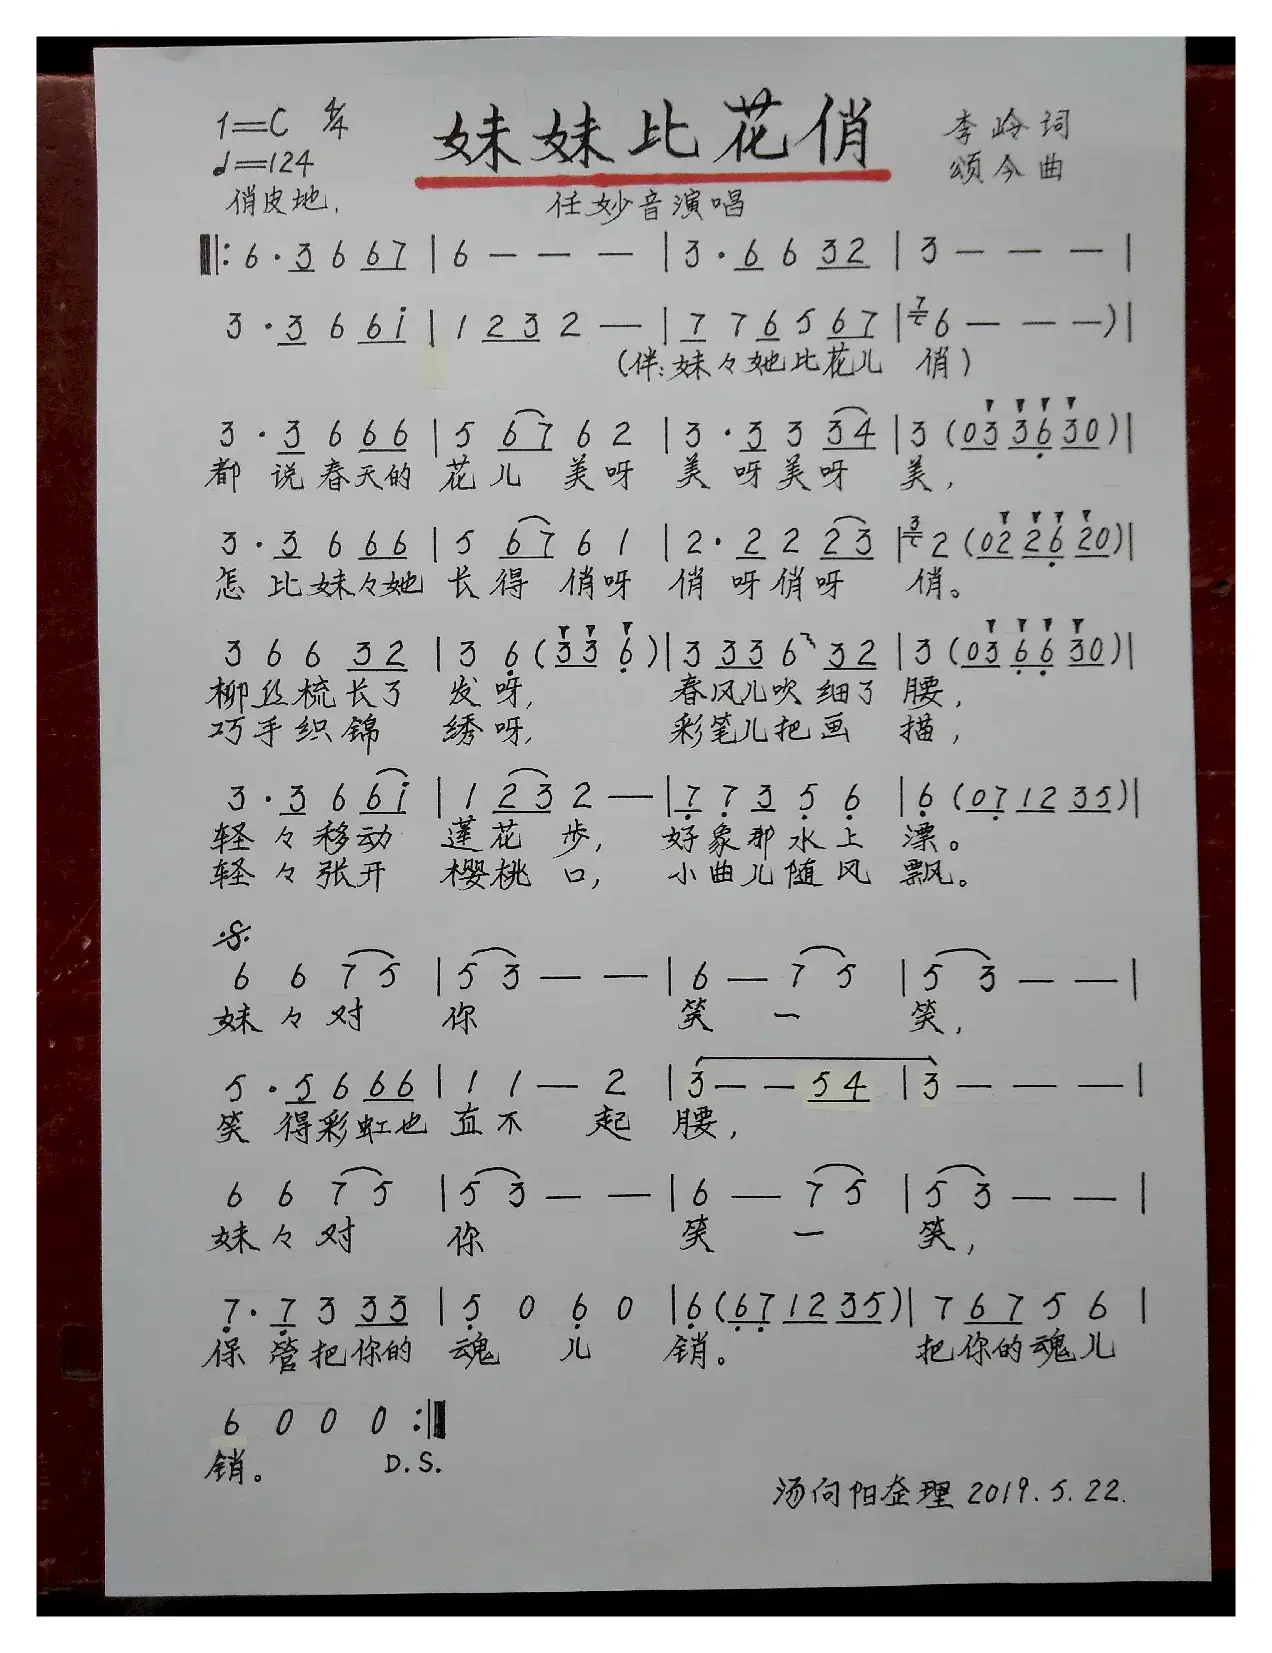 1=C 4/4
♩=124
俏皮地.
妹妹比花俏
李岭词
颂今曲
任妙音演唱
‖: 6 · 3 6 6 7 | 6 — — — | 3 · 6 6 3 2 | 3 — — — |
3 · 3 6 6 i | 1 2 3 2 — | 7 7 6 5 6 7 | 7 6 — — —) |
(伴:妹々她比花儿 俏)
3 · 3 6 6 6 | 5 6 7 6 2 | 3 · 3 3 3 4 | 3 (0 3 3 6 3 0) |
都 说春天的 花儿 美呀 美 呀美呀 美,
3 · 3 6 6 6 | 5 6 7 6 1 | 2 · 2 2 2 3 | 3 2 (0 2 2 6 2 0) |
怎 比妹々她 长得 俏呀 俏 呀俏呀 俏。
3 6 6 3 2 | 3 6 (3 3 6) | 3 3 3 6 3 2 | 3 (0 3 6 6 3 0) |
柳丝梳长了 发呀, 春风儿吹细了 腰,
巧手织锦 绣呀, 彩笔儿把画 描,
3 · 3 6 6 i | 1 2 3 2 — | 7 7 3 5 6 | 6 (0 7 1 2 3 5) |
轻々移动 莲花步, 好象那水上 漂。
轻々张开 樱桃口, 小曲儿随风 飘。
𝄋
6 6 7 5 | 5 3 — — | 6 — 7 5 | 5 3 — — |
妹々对 你 笑 一 笑,
5 · 5 6 6 6 | 1 1 — 2 | 3 — — 5 4 | 3 — — — |
笑 得彩虹也 直不 起 腰,
6 6 7 5 | 5 3 — — | 6 — 7 5 | 5 3 — — |
妹々对 你 笑 一 笑,
7 · 7 3 3 3 | 5 0 6 0 | 6 (6 7 1 2 3 5) | 7 6 7 5 6 |
保 管把你的 魂 儿 销。 把你的魂儿
6 0 0 0 :‖
销。 D.S.
汤向阳整理 2019.5.22.